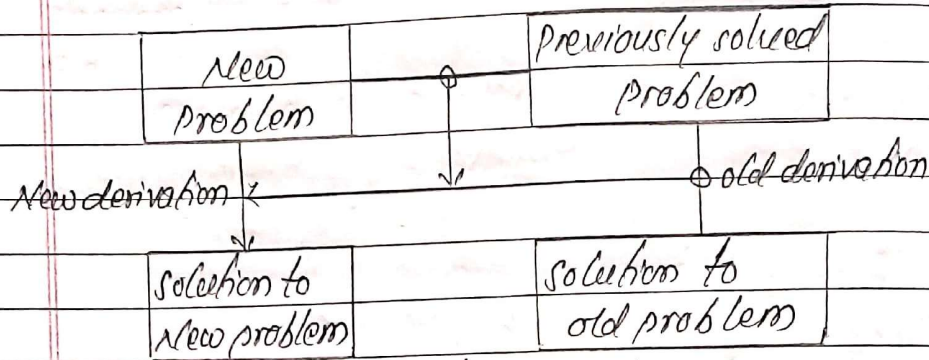 New
Problem
Previously solved
Problem
New derivation
old derivation
solution to
New problem
solution to
old problem